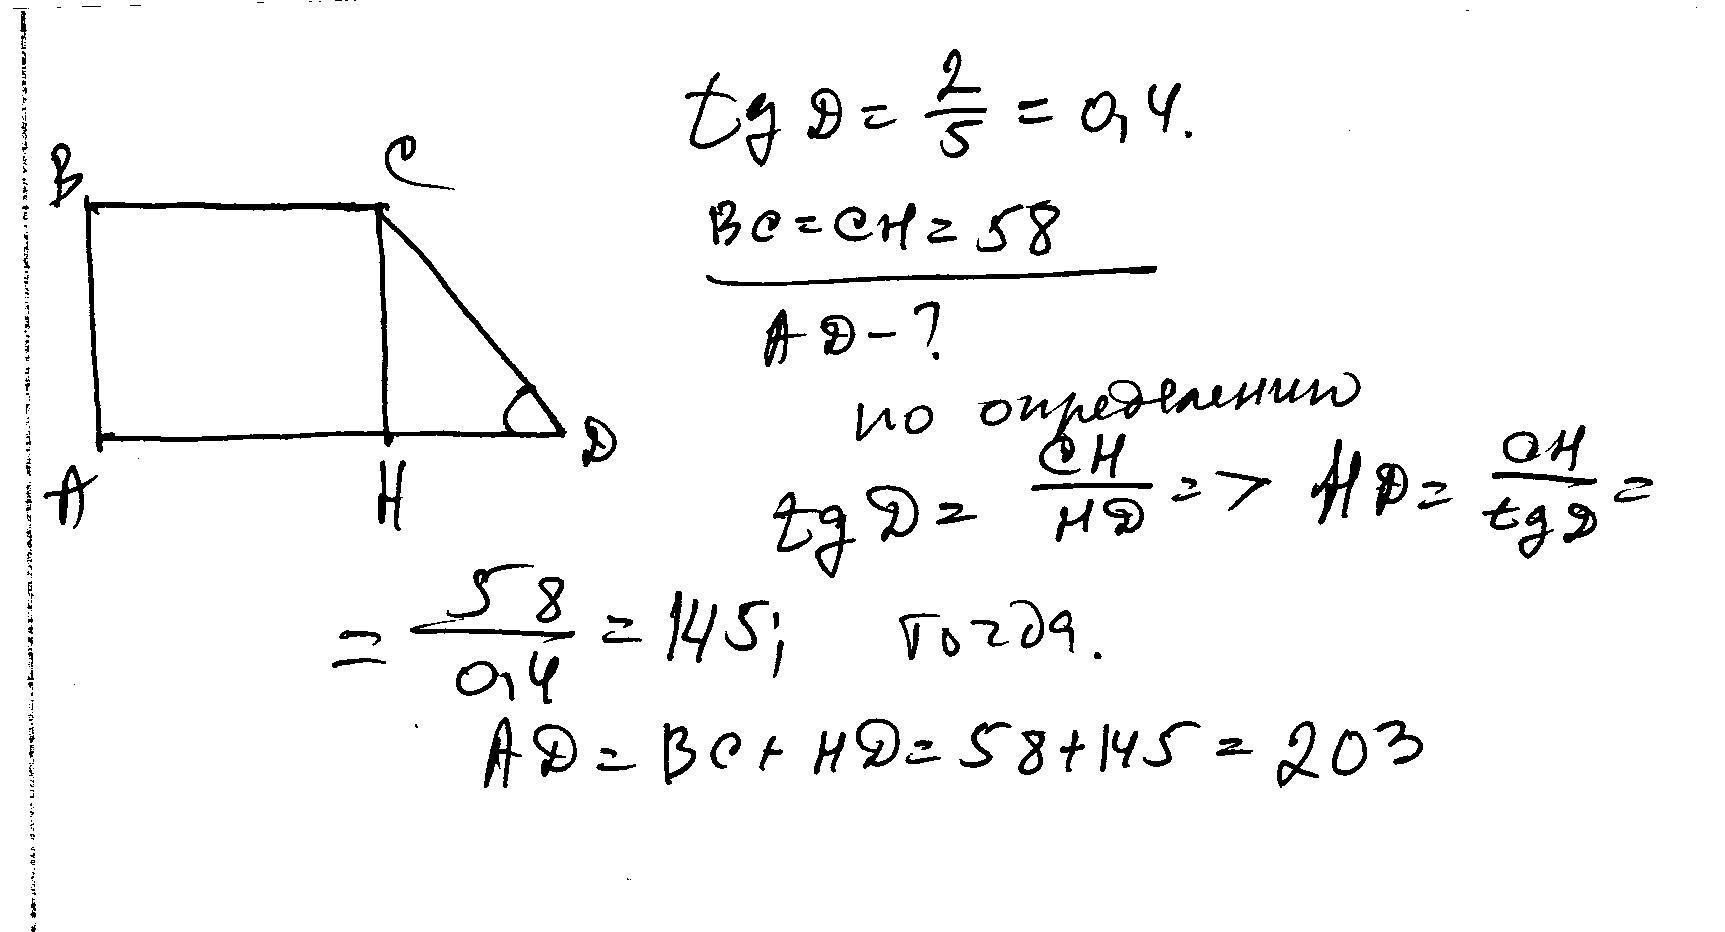 tg D = 2/5 = 0,4.
B C
BC = CH = 58
AD - ?
по определению
A H D
tg D = CH/HD => HD = CH/tg D =
= 58/0,4 = 145; тогда.
AD = BC + HD = 58 + 145 = 203